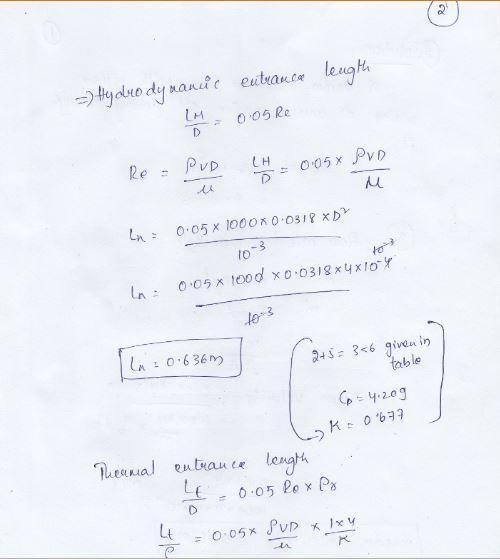 2
⇒ Hydrodynamic entrance length
LH/D = 0.05 Re
Re = ρVD/μ LH/D = 0.05 × ρVD/μ
Ln = 0.05 × 1000 × 0.0318 × D²/10⁻³
Ln = 0.05 × 1000 × 0.0318 × 4 × 10⁻⁴/10⁻³
Ln = 0.636m
given in
table
Cp = 4.209
→ K = 0.677
Thermal entrance length
Lt/D = 0.05 Re × Pr
= 0.05 × ρVD/μ ×